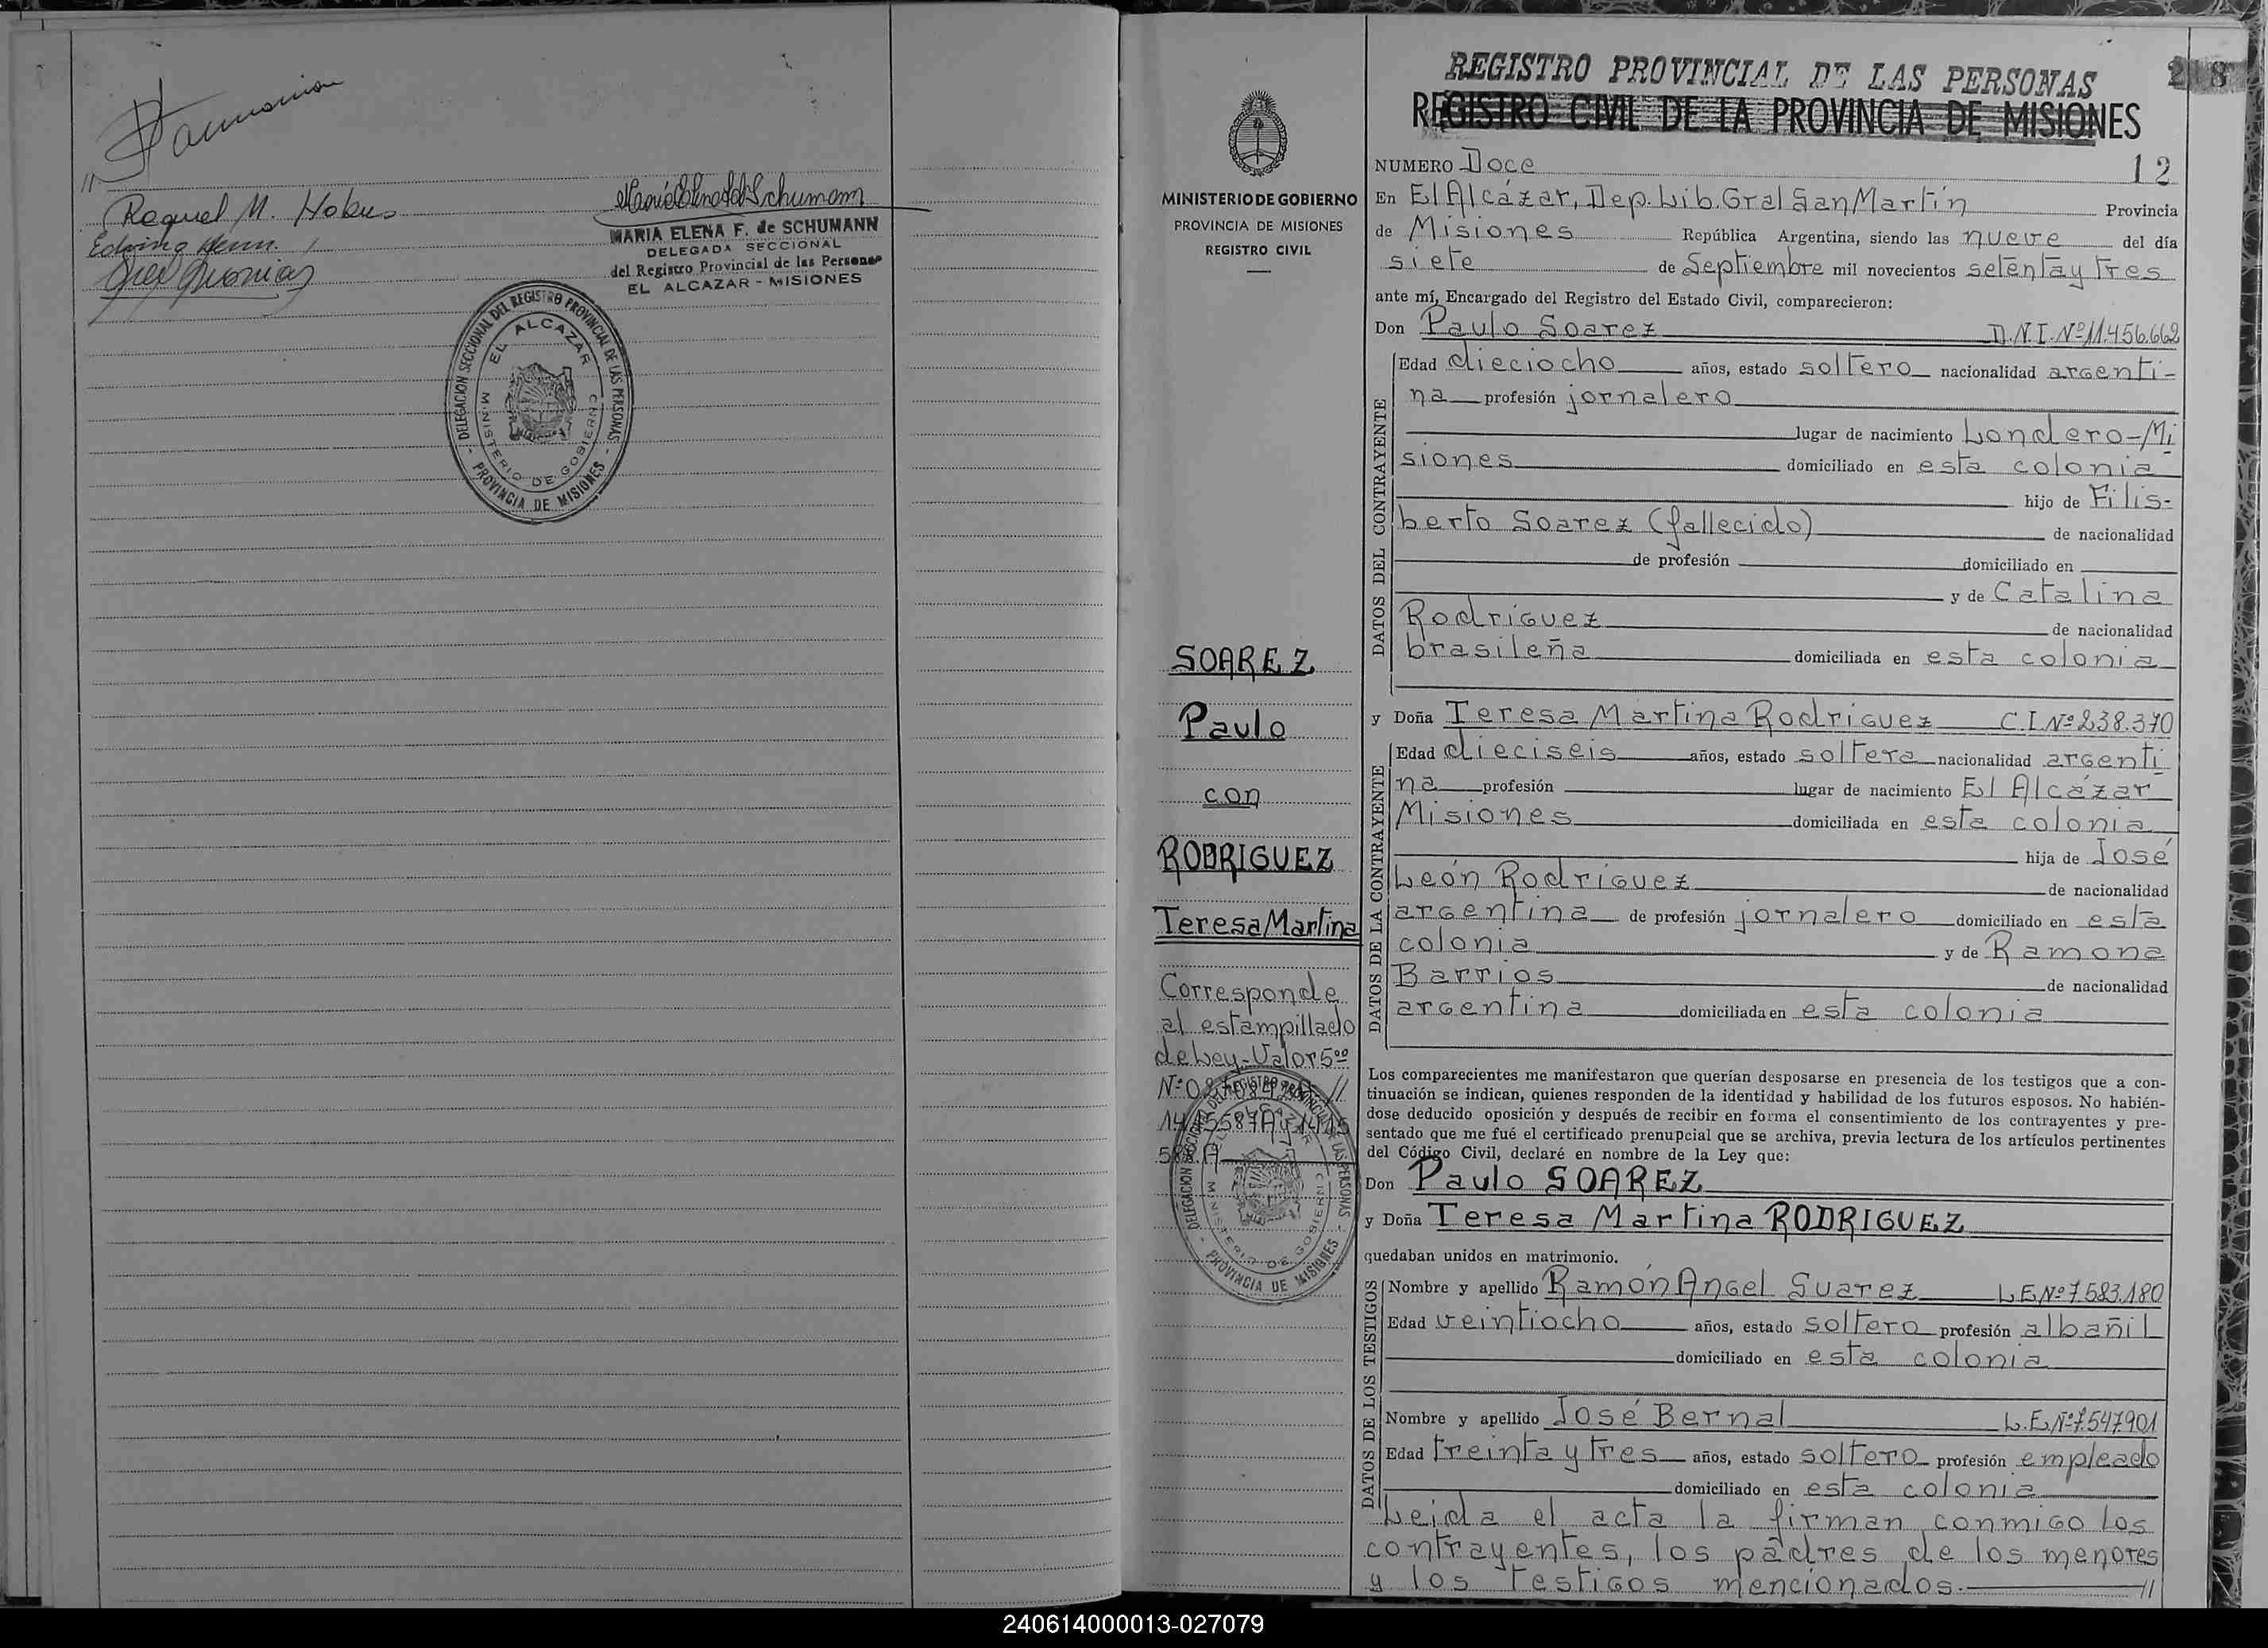 Raquel M. Hobus
MARIA ELENA F. de SCHUMANN
DELEGADA SECCIONAL
del Registro Provincial de las Personas
EL ALCAZAR - MISIONES
DELEGACION SECCIONAL DEL REGISTRO PROVINCIAL DE LAS PERSONAS
EL ALCAZAR
MINISTERIO DE GOBIERNO
- PROVINCIA DE MISIONES -
MINISTERIO DE GOBIERNO
PROVINCIA DE MISIONES
REGISTRO CIVIL
SOAREZ
Paulo
con
RODRIGUEZ
Teresa Martina
Corresponde
al estampillado
de Ley-Valor 5ºº
REGISTRO PROVINCIAL DE LAS PERSONAS
REGISTRO CIVIL DE LA PROVINCIA DE MISIONES
NUMERO Doce 12
En El Alcázar, Dep. Lib. Gral San Martín Provincia
de Misiones República Argentina, siendo las nueve del día
siete de Septiembre mil novecientos setenta y tres
ante mí, Encargado del Registro del Estado Civil, comparecieron:
Don Paulo Soarez D.N.I. Nº 11.456.662
DATOS DEL CONTRAYENTE
Edad dieciocho años, estado soltero nacionalidad argenti-
na profesión jornalero
lugar de nacimiento Londero-Mi
siones domiciliado en esta colonia
hijo de Filis-
berto Soarez (fallecido) de nacionalidad
de profesión domiciliado en
y de Catalina
Rodriguez de nacionalidad
brasileña domiciliada en esta colonia
y Doña Teresa Martina Rodriguez C.I. Nº 238.370
DATOS DE LA CONTRAYENTE
Edad dieciseis años, estado soltera nacionalidad argenti
na profesión lugar de nacimiento El Alcázar
Misiones domiciliada en esta colonia
hija de José
León Rodriguez de nacionalidad
argentina de profesión jornalero domiciliado en esta
colonia y de Ramona
Barrios de nacionalidad
argentina domiciliada en esta colonia
Los comparecientes me manifestaron que querían desposarse en presencia de los testigos que a con-
tinuación se indican, quienes responden de la identidad y habilidad de los futuros esposos. No habién-
dose deducido oposición y después de recibir en forma el consentimiento de los contrayentes y pre-
sentado que me fué el certificado prenupcial que se archiva, previa lectura de los artículos pertinentes
del Código Civil, declaré en nombre de la Ley que:
Don Paulo SOAREZ
y Doña Teresa Martina RODRIGUEZ
quedaban unidos en matrimonio.
DATOS DE LOS TESTIGOS
Nombre y apellido Ramón Angel Suarez L.E. Nº 7.583.180
Edad veintiocho años, estado soltero profesión albañil
domiciliado en esta colonia
Nombre y apellido José Bernal L.E. Nº 7.547.901
Edad treinta y tres años, estado soltero profesión empleado
domiciliado en esta colonia
Leida el acta la firman conmigo los
contrayentes, los padres de los menores
y los testigos mencionados.- //
240614000013-027079